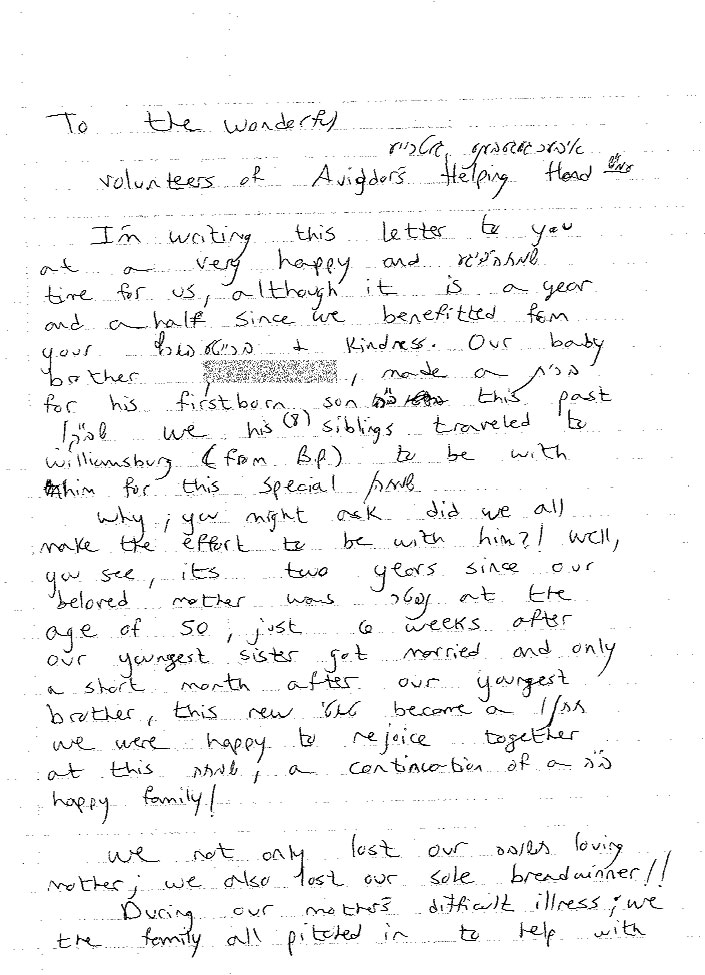 To the wonderful
volunteers of Avigdor's Helping Hand
I'm writing this letter to you
at a very happy and
time for us, although it is a year
and a half since we benefitted from
your & kindness. Our baby
brother , made a ברית
for his firstborn son this past
we his (8) siblings traveled to
Williamsburg (from B.P) to be with
him for this special שמחה
Why, you might ask did we all
make the effort to be with him?! Well,
you see, its two years since our
beloved mother was נפטר at the
age of 50, just 6 weeks after
our youngest sister got married and only
a short month after our youngest
brother, this new became a חתן
we were happy to rejoice together
at this שמחה, a continuation of a ב"ה
happy family!
We not only lost our loving
mother, we also lost our sole breadwinner!!
During our mother's difficult illness, we
the family all pitched in to help with